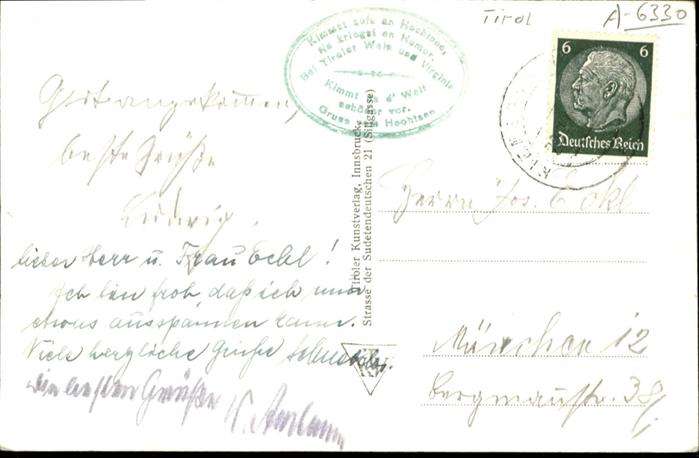 Tirol
A-6330
Kimmst aufs an Hochtsee,
Na kriegst an Humor.
Bei Tiroler Wein und Virginia
Kimmt d' Welt
schöner vor.
Gruss Hochtsee
6 6
Deutsches Reich
Gut angekommen,
beste Grüße
Ludwig.
lieber Herr u. Frau Eckl!
Ich bin froh daß ich nun
etwas ausspannen kann.
Viele herzliche Grüße
die besten Grüße
Tiroler Kunstverlag, Innsbruck,
Strasse der Sudetendeutschen 21 (Sillgasse)
Herrn Jos. Eckl
München 12
Bergmannstr. 38/